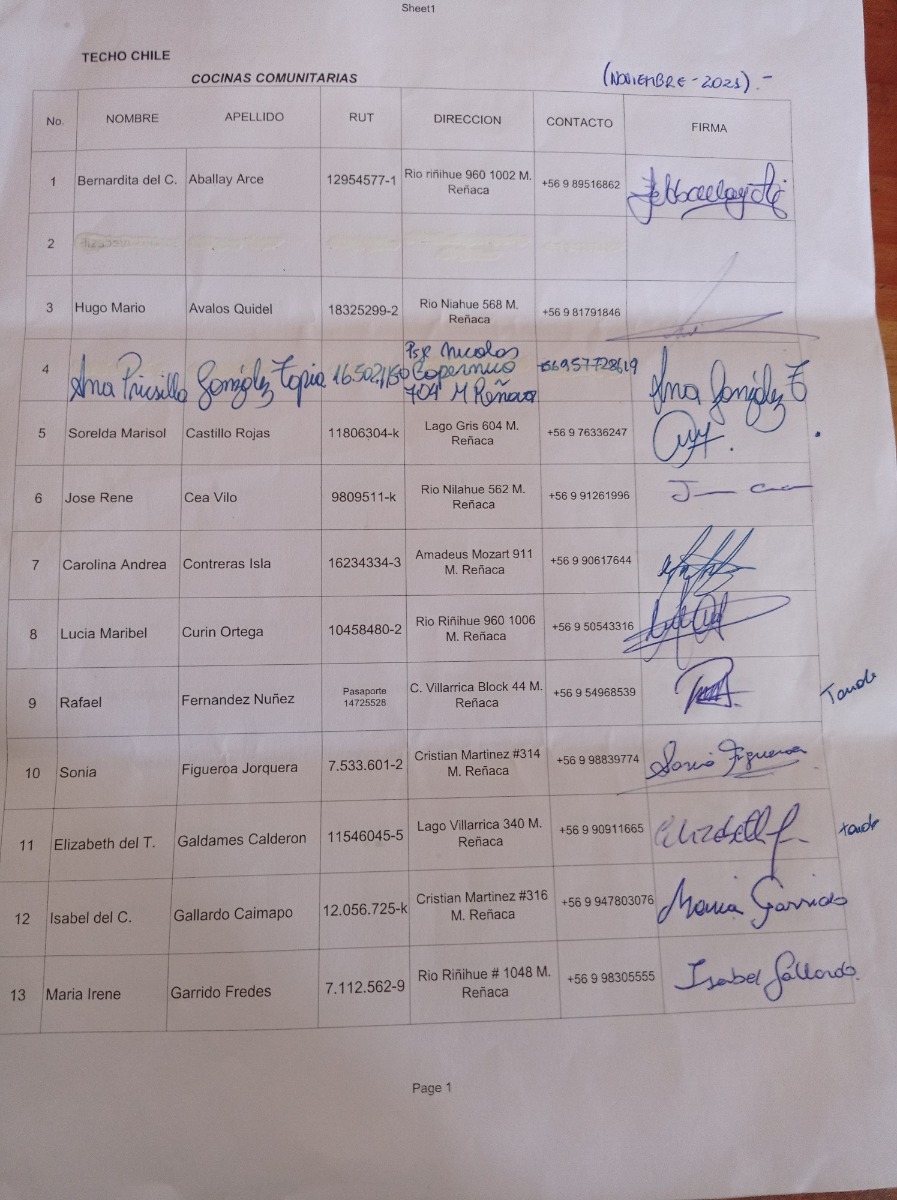 Sheet1
TECHO CHILE
COCINAS COMUNITARIAS (NOVIEMBRE - 2021). -
No. NOMBRE APELLIDO RUT DIRECCION CONTACTO FIRMA
1 Bernardita del C. Aballay Arce 12954577-1 Rio riñihue 960 1002 M. Reñaca +56 9 89516862
2
3 Hugo Mario Avalos Quidel 18325299-2 Rio Niahue 568 M. Reñaca +56 9 81791846
4 Ana Pricsilla González Tapia Psje Nicolas Copernico 704 M Reñaca 56957728619 Ana González T
5 Sorelda Marisol Castillo Rojas 11806304-k Lago Gris 604 M. Reñaca +56 9 76336247
6 Jose Rene Cea Vilo 9809511-k Rio Nilahue 562 M. Reñaca +56 9 91261996
7 Carolina Andrea Contreras Isla 16234334-3 Amadeus Mozart 911 M. Reñaca +56 9 90617644
8 Lucia Maribel Curin Ortega 10458480-2 Rio Riñihue 960 1006 M. Reñaca +56 9 50543316
9 Rafael Fernandez Nuñez Pasaporte 14725528 C. Villarrica Block 44 M. Reñaca +56 9 54968539 Tarde
10 Sonia Figueroa Jorquera 7.533.601-2 Cristian Martinez #314 M. Reñaca +56 9 98839774 Sonia Figueroa
11 Elizabeth del T. Galdames Calderon 11546045-5 Lago Villarrica 340 M. Reñaca +56 9 90911665 Elizabeth G. tarde
12 Isabel del C. Gallardo Caimapo 12.056.725-k Cristian Martinez #316 M. Reñaca +56 9 947803076 Maria Garrido
13 Maria Irene Garrido Fredes 7.112.562-9 Rio Riñihue # 1048 M. Reñaca +56 9 98305555 Isabel Gallardo.
Page 1